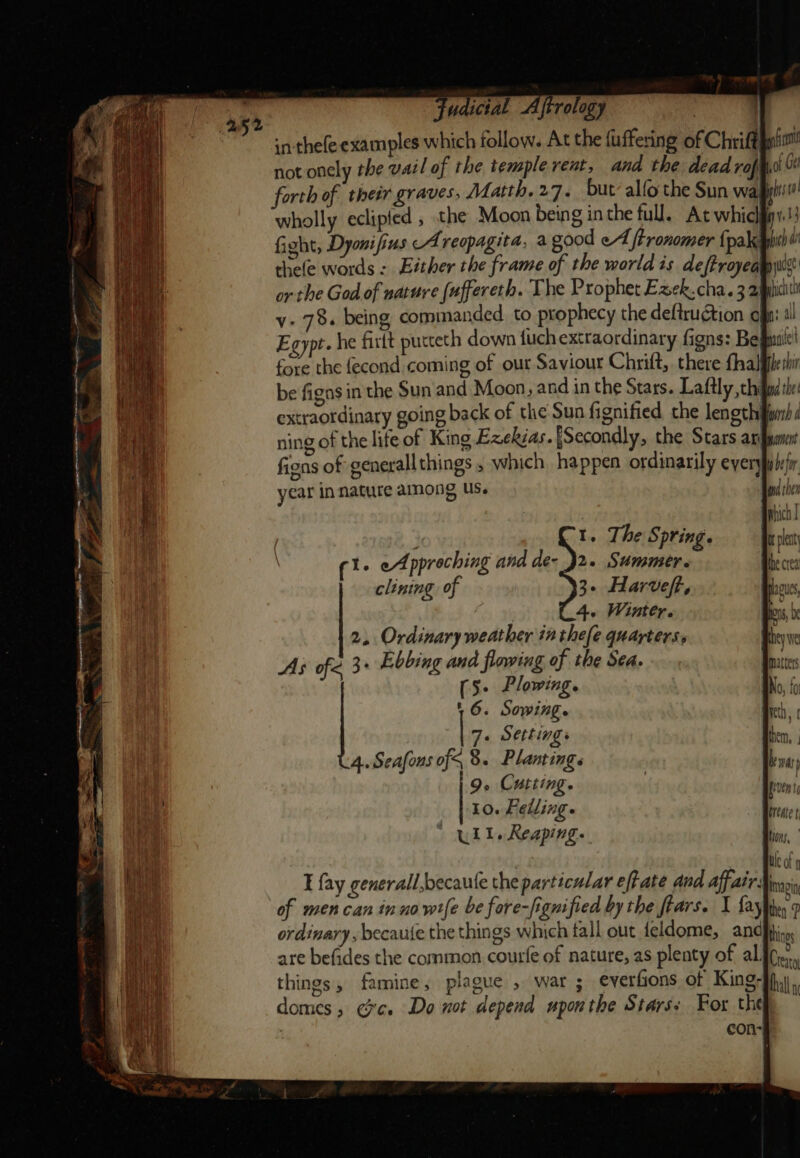 252
Judicial Aſtrology
in theſe examples which follow. At the ſuffering of Chriſt
not onely the vail of the temple rent, and the dead roſ
forth of their graves, Matth. 27. but alſo the Sun wa
wholly eclipſed, the Moon being in the full. At which
ſight, Dyoniſius Areopagita, a good Aſtronomer ſpak
theſe words: Either the frame of the world is deſtroyed
or the God of nature ſuffereth. The Prophet Ezek. cha. 32
v. 78. being commanded to prophecy the deſtruction
Egypt. he firſt putteth down ſuch extraordinary ſigns: Be
fore the ſecond coming of our Saviour Chriſt, there ſhal
be ſigns in the Sun and Moon, and in the Stars. Laſtly, th
extraordinary going back of the Sun ſignified the length
ning of the life of King Ezekias. [Secondly, the Stars ar
ſigns of generall things, which happen ordinarily every
year in nature among us.
As of
1. Approching and de-
clining of
1. The Spring.
2. Summer.
3. Harveſt,
4. Winter.
2. Ordinary weather in theſe quarters,
3. Ebbing and flowing of the Sea.
4. Seaſons of
5. Plowing.
6. Sowing.
7. Setting.
8. Planting.
9. Cutting.
10. Felling.
11. Reaping.
I ſay generall, becauſe the particular eſtate and affairs
of men can in no wiſe be fore-ſignified by the ſtars. I ſay
ordinary, becauſe the things which fall out ſeldome, and
are beſides the common courſe of nature, as plenty of al
things, famine, plague, war; everſions of King-
domes, &c. Do not depend upon the Stars: For the
con-